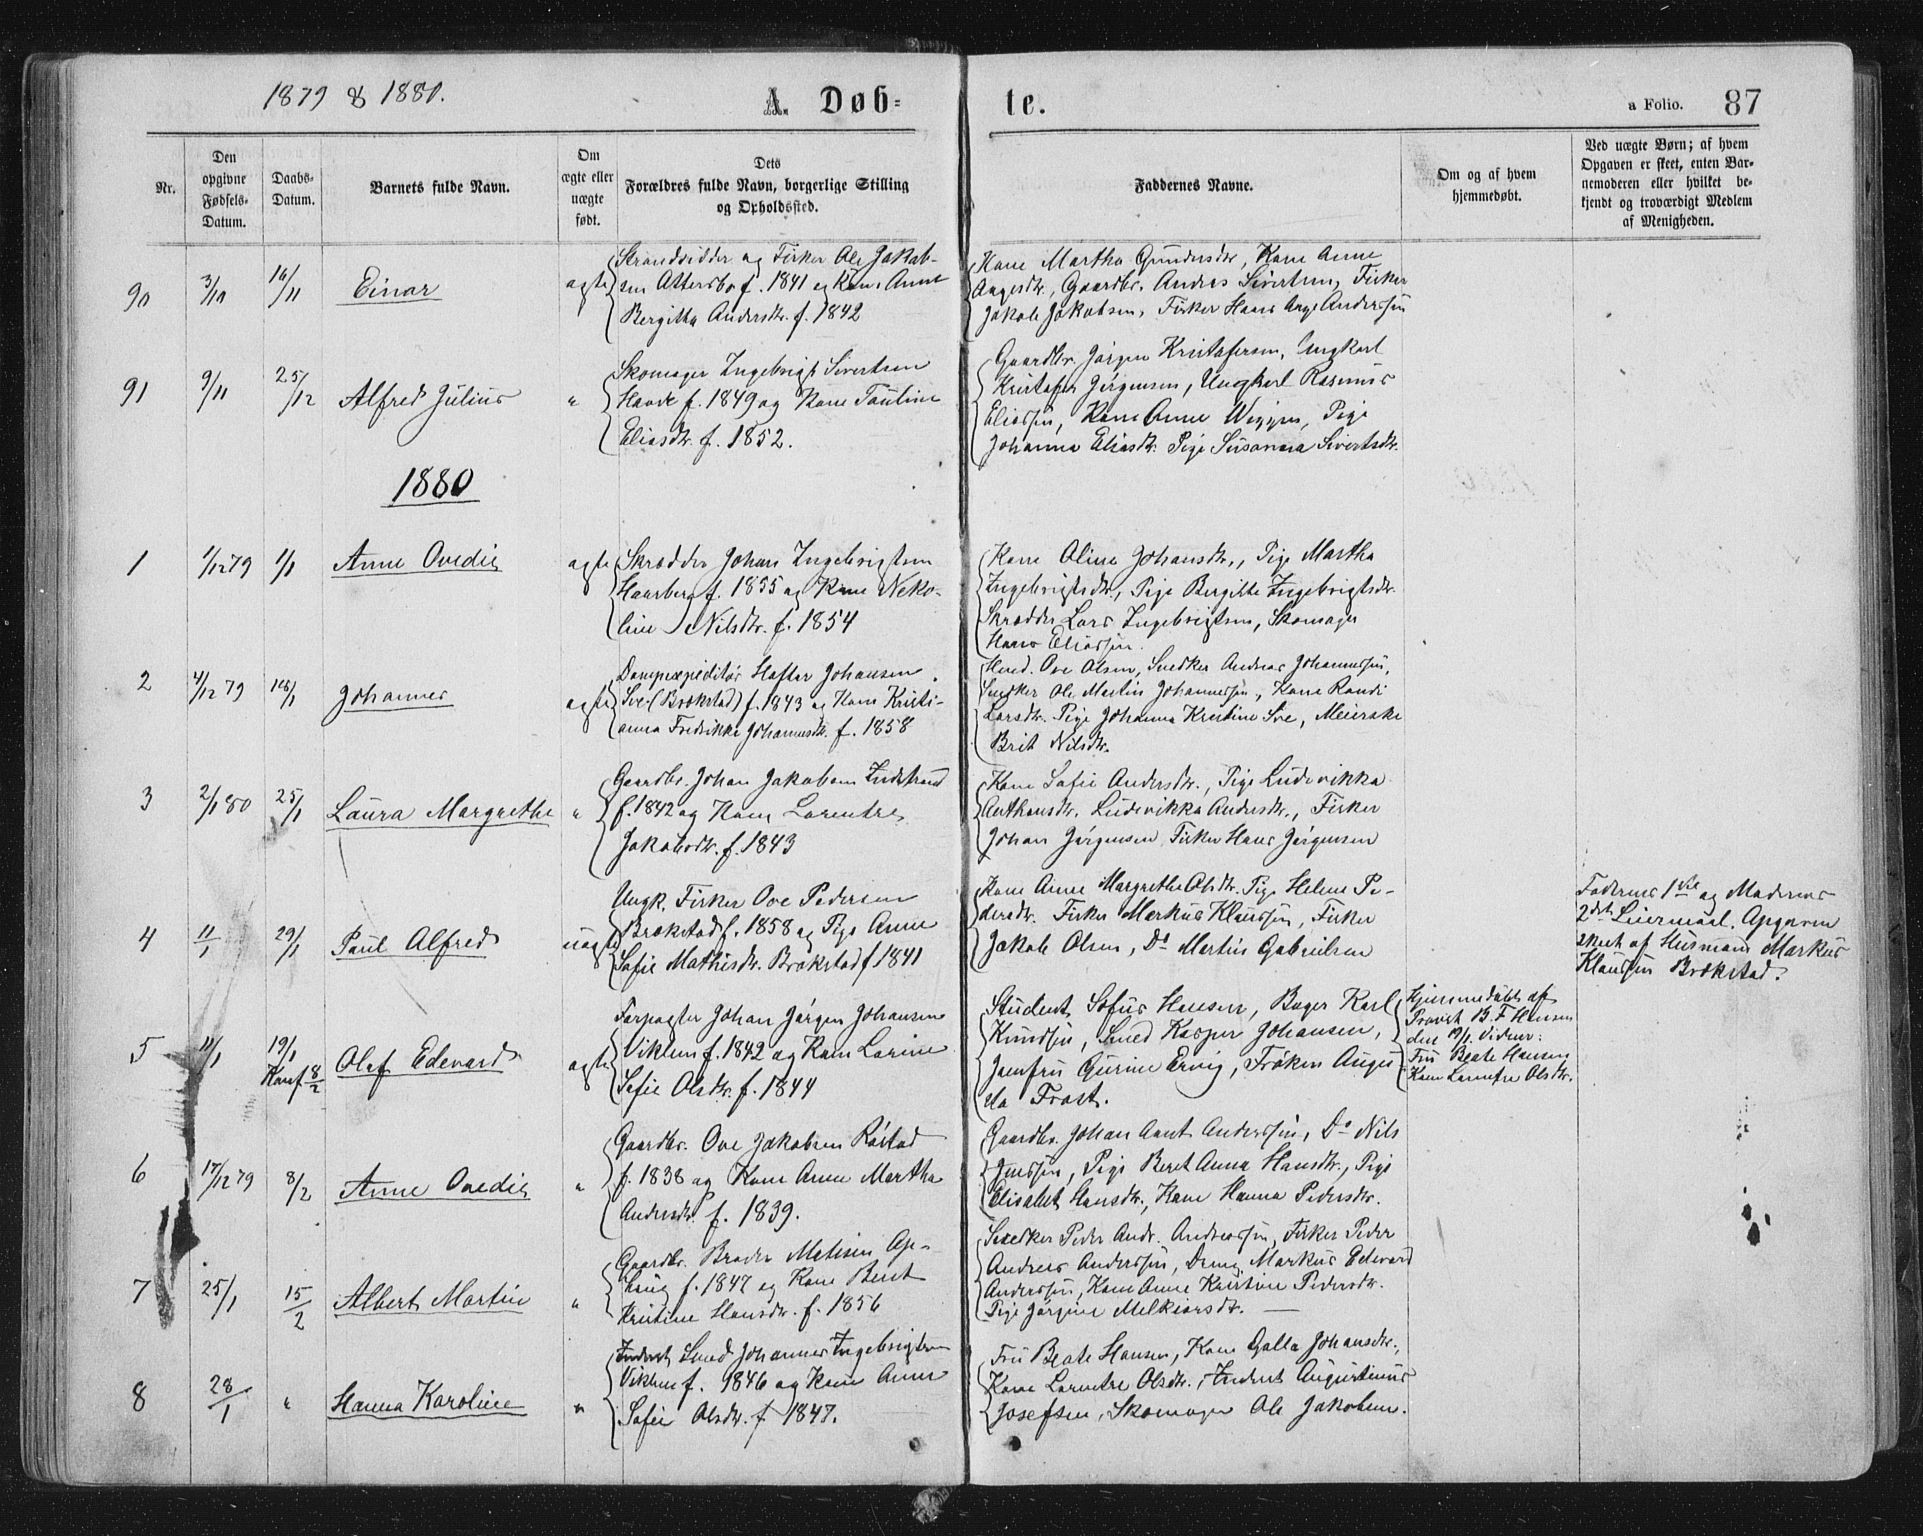 1879 & 1880.
A. Døb-
te.
a Folio. 87
Nr.
Den opgivne Fødsels-Datum.
Daabs-Datum.
Barnets fulde Navn.
Om ægte eller uægte født.
Dets Forældres fulde Navn, borgerlige Stilling og Opholdssted.
Faddernes Navne.
Om og af hvem hjemmedøbt.
Ved uægte Børn; af hvem Opgaven er skeet, enten Barnemoderen eller hvilket bekjendt og troværdigt Medlem af Menigheden.
90 3/10 16/11 Einar ægte
Strandsidder og Fisker Ole Jakob-
sen f. 1841 og Kone Anne
Bergitha Andersdtr. f. 1842
Kone Martha Gundersdtr., Kone Anne
Aagesdtr., Gaardbr. Andreas Sivertsen, Fisker
Jakob Jakobsen, Fisker Hans Aage Anderssøn
91 9/11 25/12 Alfred Julius "
Skomager Ingebrigt Sivertsen
f. 1849 og Kone Pauline
Eliasdtr. f. 1852.
Gaardbr. Jørgen Kristofersen, Ungkarl
Kristofer Jørgensen, Ungkarl Rasmus
Eliassøn, Kone Anne Wiggen, Pige
Johanna Eliasdtr. Pige Susanna Sivertsdtr.
1880
1 1/12 79 1/1 Anne Ovedie ægte
Skrædder Johan Ingebrigtsen
Haarberg f. 1855 og Kone Neko-
line Nilsdtr. f. 1854
Kone Oline Johansdtr., Pige Martha
Ingebrigtsdtr., Pige Bergitte Ingebrigtsdtr.
Skrædder Lars Ingebrigtsen, Skomager
Hans Eliassøn.
2 4/12 79 18/1 Johannes ægte
Dampexpeditør Hoftor Johansen
(Brækstad) f. 1843 og Kone Kristi-
anna Fredrikke Johannesdtr. f. 1858
Ove Olsen, Snedker Andreas Johannessøn,
Snedker Ole Martin Johannessøn, Kone Randi
Larsdtr. Pige Johanna Kristine Sve, Meierske
Brit Nilsdtr.
3 2/1 80 25/1 Laura Margrethe "
Gaardbr. Johan Jakobsen Indstrand
f. 1842 og Kone Lorentze
Jakobsdtr. f. 1843
Kone Sofie Andersdtr., Pige Ludevikka
Arthansdtr. Ludevikka Andersdtr., Fisker
Johan Jørgensen, Fisker Hans Jørgensen
4 11/1 29/1 Paul Alfred uægte
Ungk. Fisker Ove Pedersen
Brækstad f. 1858 og Pige Anne
Sofie Mathisdtr. Brækstad f. 1841
Kone Anne Margrethe Olsdtr. Pige Helene Pe-
dersdtr. Fisker Markus Klaussøn, Fisker
Jakob Olsen, Do Martin Gabrielsen
Faderens 1ste og Moderens
2det Leiermaal. Opgaven
skeet af Husmand Markus
Klaussøn Brækstad.
5 11/1 19/1 Konf. 8/2 Olaf Edevard ægte
Forpagter Johan Jørgen Johansen
Viklem f. 1842 og Kone Lorine
Sofie Olsdtr. f. 1844
Student Sofus Hansen, Bager Karl
Knudsøn, Smed Kasper Johansen,
Jomfru Gurine Ervig, Frøken Augu-
sta Frost.
Hjemmedøbt af
Provst B. F. Hansen
den 19/1. Vidner:
Fru Beate Hansen
Kone Lorentze Olsdtr.
6 17/12 79 8/2 Anne Ovedie "
Gaardbr. Ove Jakobsen Røstad
f. 1838 og Kone Anne Martha
Andersdtr. f. 1839.
Gaardbr. Johan Arnt Anderssøn, Do Nils
Jenssøn, Pige Beret Anna Hansdtr., Pige
Elisabet Hansdtr., Kone Hanna Pedersdtr.
7 25/1 15/2 Albert Martin "
Gaardbr. Broder Matisen Op-
haug f. 1847 og Kone Beret
Kristine Hansdtr. f. 1856
Snedker Peder Andr. Andreassøn, Fisker Peder
Andreas Anderssøn, Dreng Markus Edevard
Anderssøn, Kone Anne Kristine Pedersdtr.
Pige Jørgine Melkiorsdt.
8 28/1 " Hanna Karoline "
Inderst Smed Johannes Ingebrigtsen
Viklem f. 1846 og Kone Anne
Sofie Olsdtr. f. 1847.
Fru Beate Hansen, Kone Galla Johansdtr.,
Kone Lorentze Olsdtr., Inderst Augustinus
Josefsen, Skomager Ole Jakobsen.